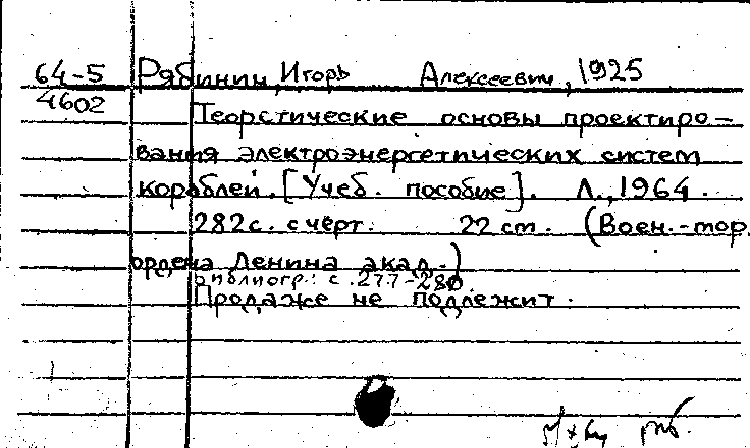 64-5 Рябинин, Игорь Алексеевич, 1925
4602
Теоретические основы проектиро-
вания электроэнергетических систем
кораблей. [Учеб. пособие]. Л., 1964.
282 с. с черт. 22 см. (Воен.-мор.
ордена Ленина акад.)
Библиогр.: с. 277-280.
Продаже не подлежит.